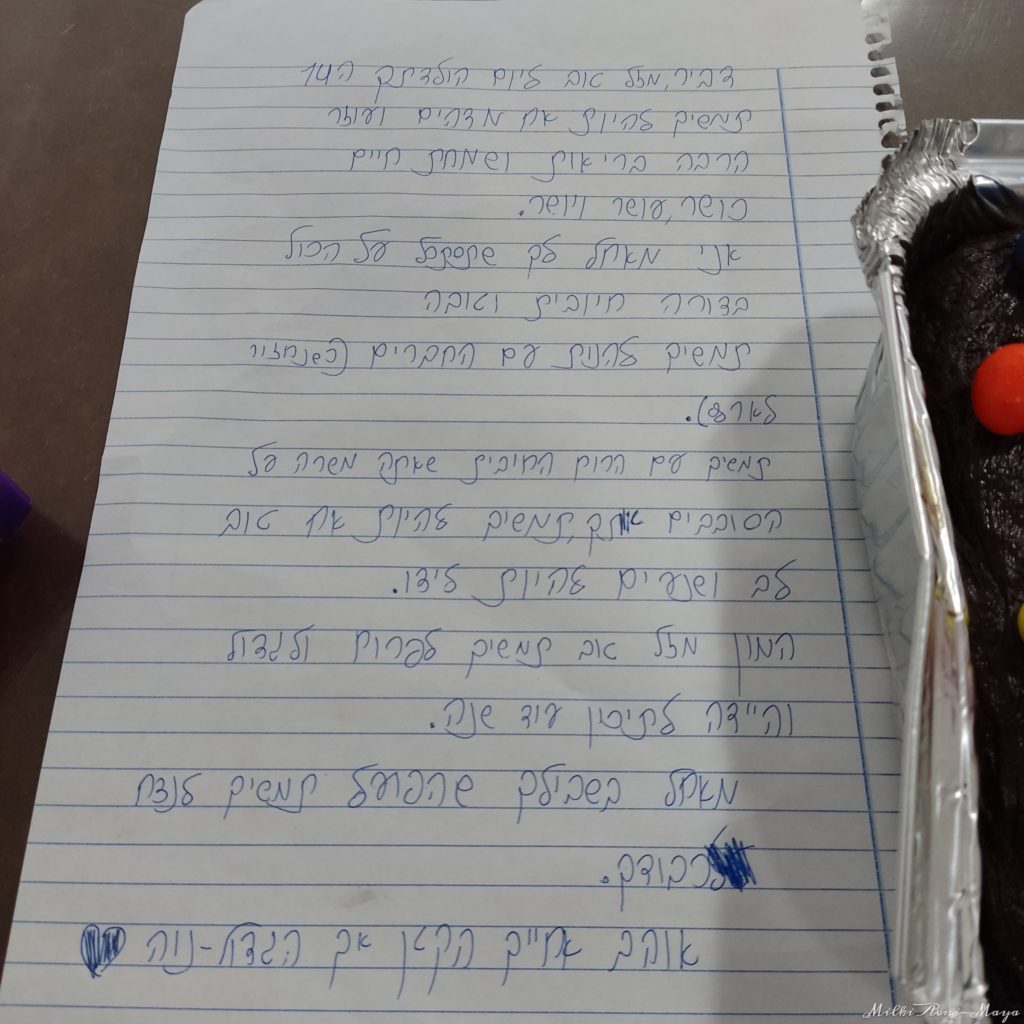 דביר, מזל טוב ליום הולדתך ה14
תמשיך להיות אח מדהים ועוזר
הרבה בריאות ושמחת חיים
כושר, עושר ויושר.
אני מאחל לך שתסתכל על הכול
בצורה חיובית וטובה
תמשיך להנות עם החברים (כשתחזור
לארץ).
תמשיך עם הרוח החיובית שאתה משרה על
הסובבים אותך, תמשיך להיות אח טוב
לב ושנעים להיות לידו.
המון מזל טוב תמשיך לפרוח ולגדול
והיידה לתיכון עוד שנה.
מאחל בשבילך שהפועל תמשיך לנצח
לכבודך.
אוהב אחייך הקטן אך הגדול-נוה
Milki Roni-Maya